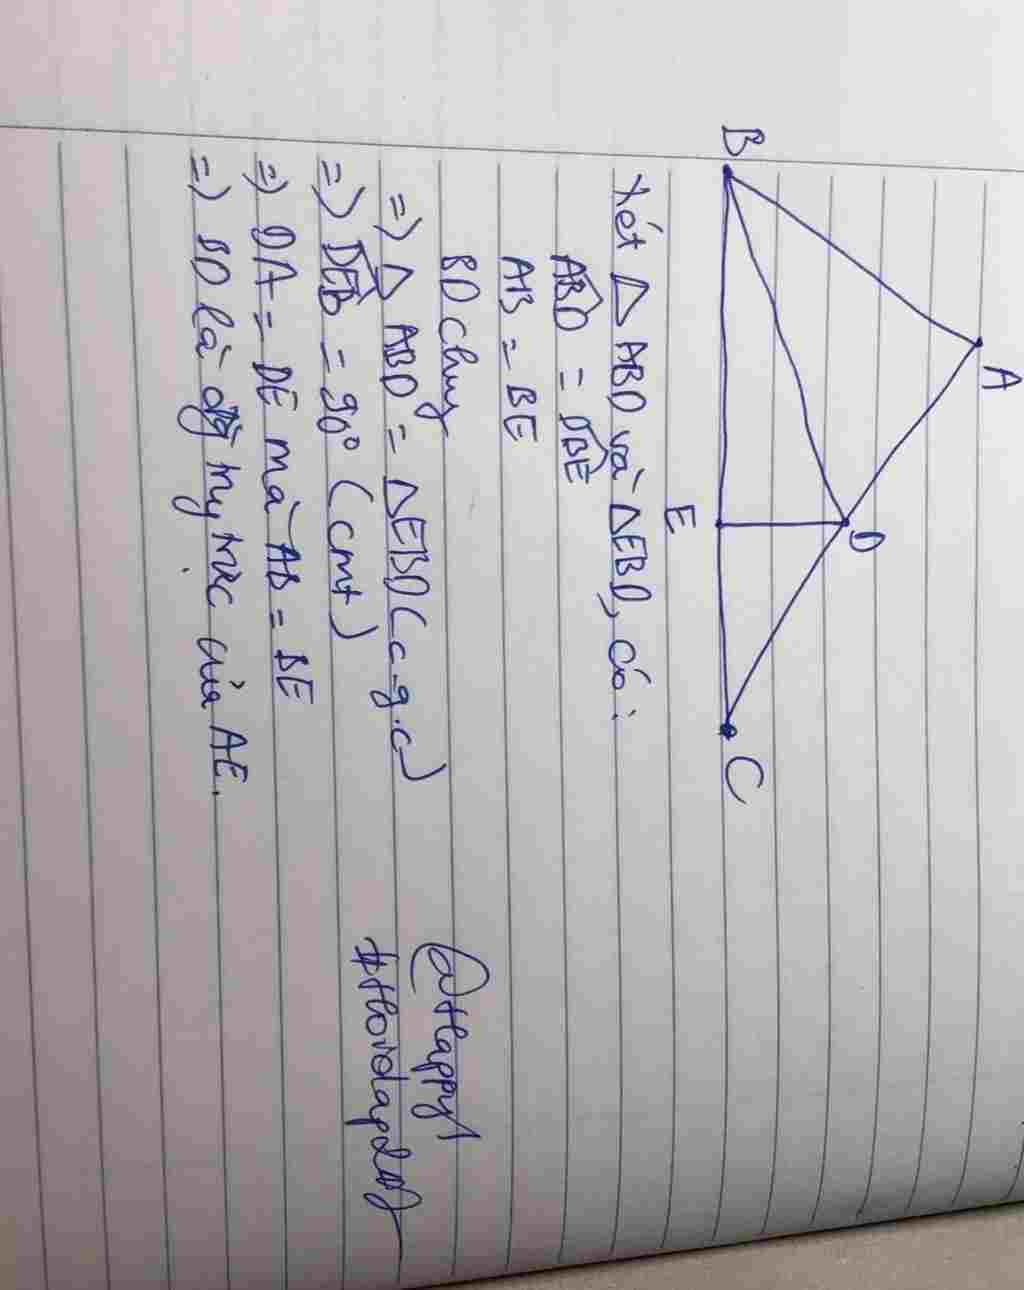 A
B
D
E
C
Xét △ ABD và △EBD, có:
ABD̂ = DBÊ
AB = BE
BD chung
=> △ ABD = △EBD (c-g.c)
=> DEB̂ = 90° (cmt)
=> DA = DE mà AB = BE
=> BD là đg trung trực của AE.
@Happy1
#Hoidap247